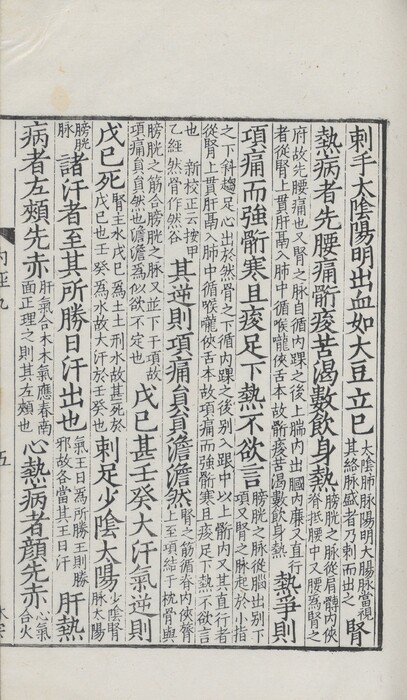 刺手太陰陽明出血如大豆立巳太陰肺脉陽明大腸脉當視其絡脉盛者乃刺而出之腎
熱病者先腰痛䯒痠苦渴數飲身熱膀胱之脉從肩髆內俠脊抵腰中又腰為腎之
府故先腰痛也又腎之脉自循內踝之後上腨內出膕內廉又直行者從腎上貫肝鬲入肺中循喉嚨俠舌本故䯒痠苦渴數飲身熱熱爭則
項痛而強䯒寒且痠足下熱不欲言膀胱之脉從腦出別下項又腎之脉起於小指
之下斜趨足心出於然骨之下循內踝之後別入跟中以上䯒內又其直行者從腎上貫肝鬲入肺中循喉嚨俠舌本故項痛而強䯒寒且痠足下熱不欲言
也 新校正云按甲乙經然骨作然谷其逆則項痛員員澹澹然腎之筋循脊內俠膂上至項結于枕骨與
膀胱之筋合膀胱之脉又並下于項故項痛員員然也澹澹為似欲不定也戊巳甚壬癸大汗氣逆則
戊巳死腎主水戊巳為土土刑水故甚死於戊巳也壬癸為水故大汗於壬癸也刺足少陰太陽少陰腎脉太陽
膀胱脉諸汗者至其所勝日汗出也氣王日為所勝王則勝邪故各當其王日汗肝熱
病者左頰先赤肝氣合木木氣應春南面正理之則其左頰也心熱病者顏先赤心氣合火
內經九
五